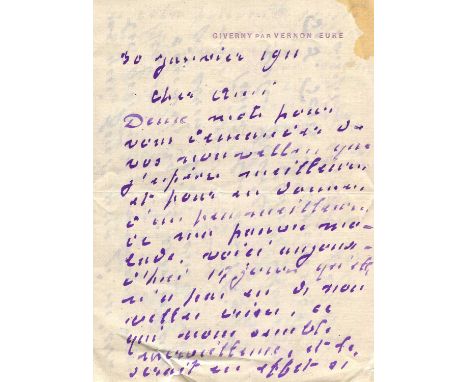 GIVERNY PAR VERNON EURE
30 janvier 1911
Cher ami
Deux mots pour
vous demander de
vos nouvelles que
j'espère meilleures
et pour en donner
d'un peu meilleures
de ma pauvre ma-
lade. voici aujour-
d'hui 15 jours qu'elle
n'a pas eu de nou
velles crises, ce
qui nous semble
merveilleux, et ce
serait en effet si